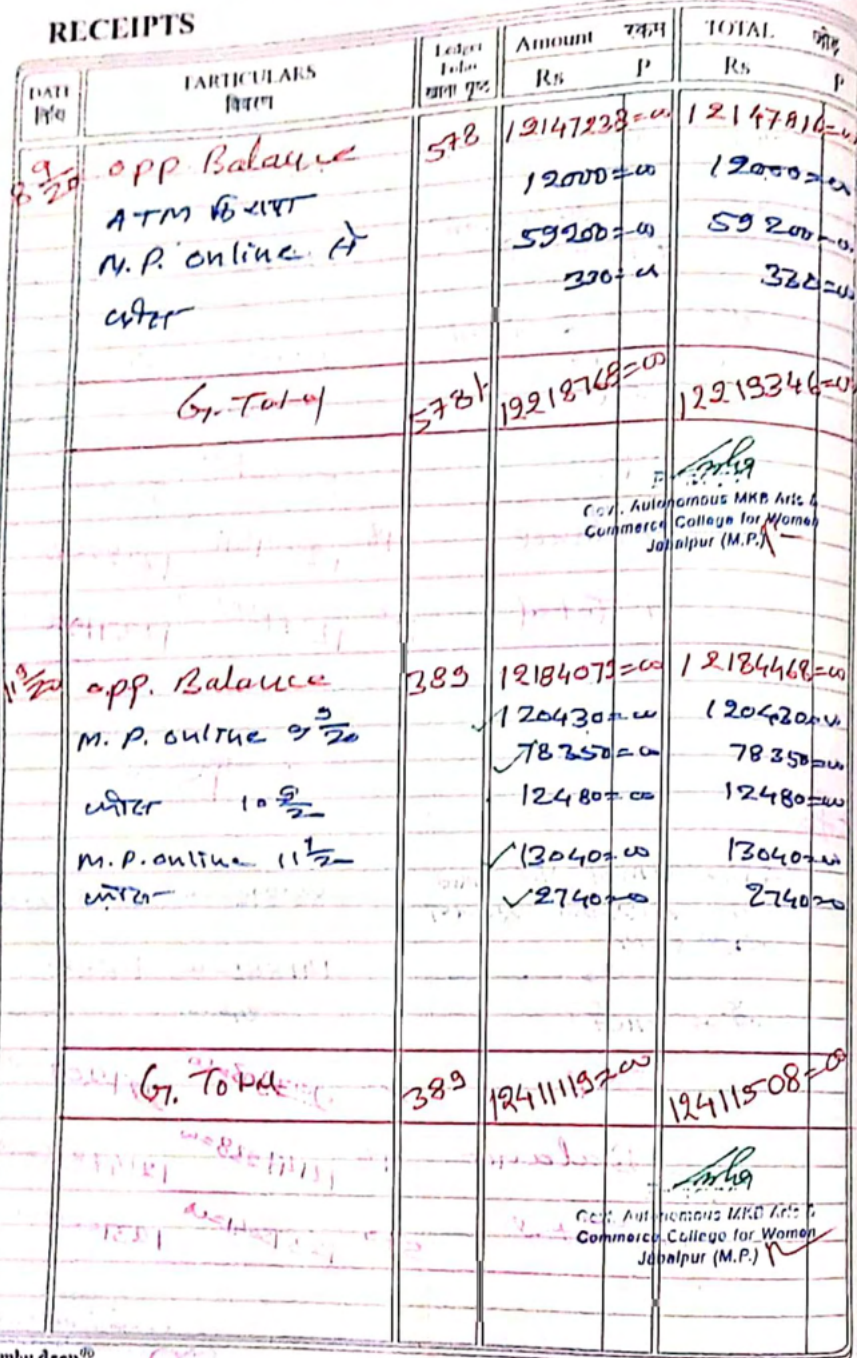 RECEIPTS
DATE PARTICULARS Ledger Folio Amount रकम TOTAL जोड़
तिथि विवरण खाता पृष्ठ Rs P Rs P
8 9/20 opp Balance 578 12147238=00 12147816=00
ATM किराया 12000=00 12000=00
M.P. online से 59200=00 59200=00
330=00 330=00
G. Total 578 12218768=00 12219346=00
Govt. Autonomous MKB Arts &
Commerce College for Women
Jabalpur (M.P.)
11 9/20 opp. Balance 389 12184079=00 12184468=00
M.P. online 9 9/20 120430=00 120430=00
78350=00 78350=00
10 9/2 12480=00 12480=00
M.P. online 11 9/2 13040=00 13040=00
2740=00 2740=00
G. Total 389 12411119=00 12411508=00
Govt. Autonomous MKB Arts &
Commerce College for Women
Jabalpur (M.P.)